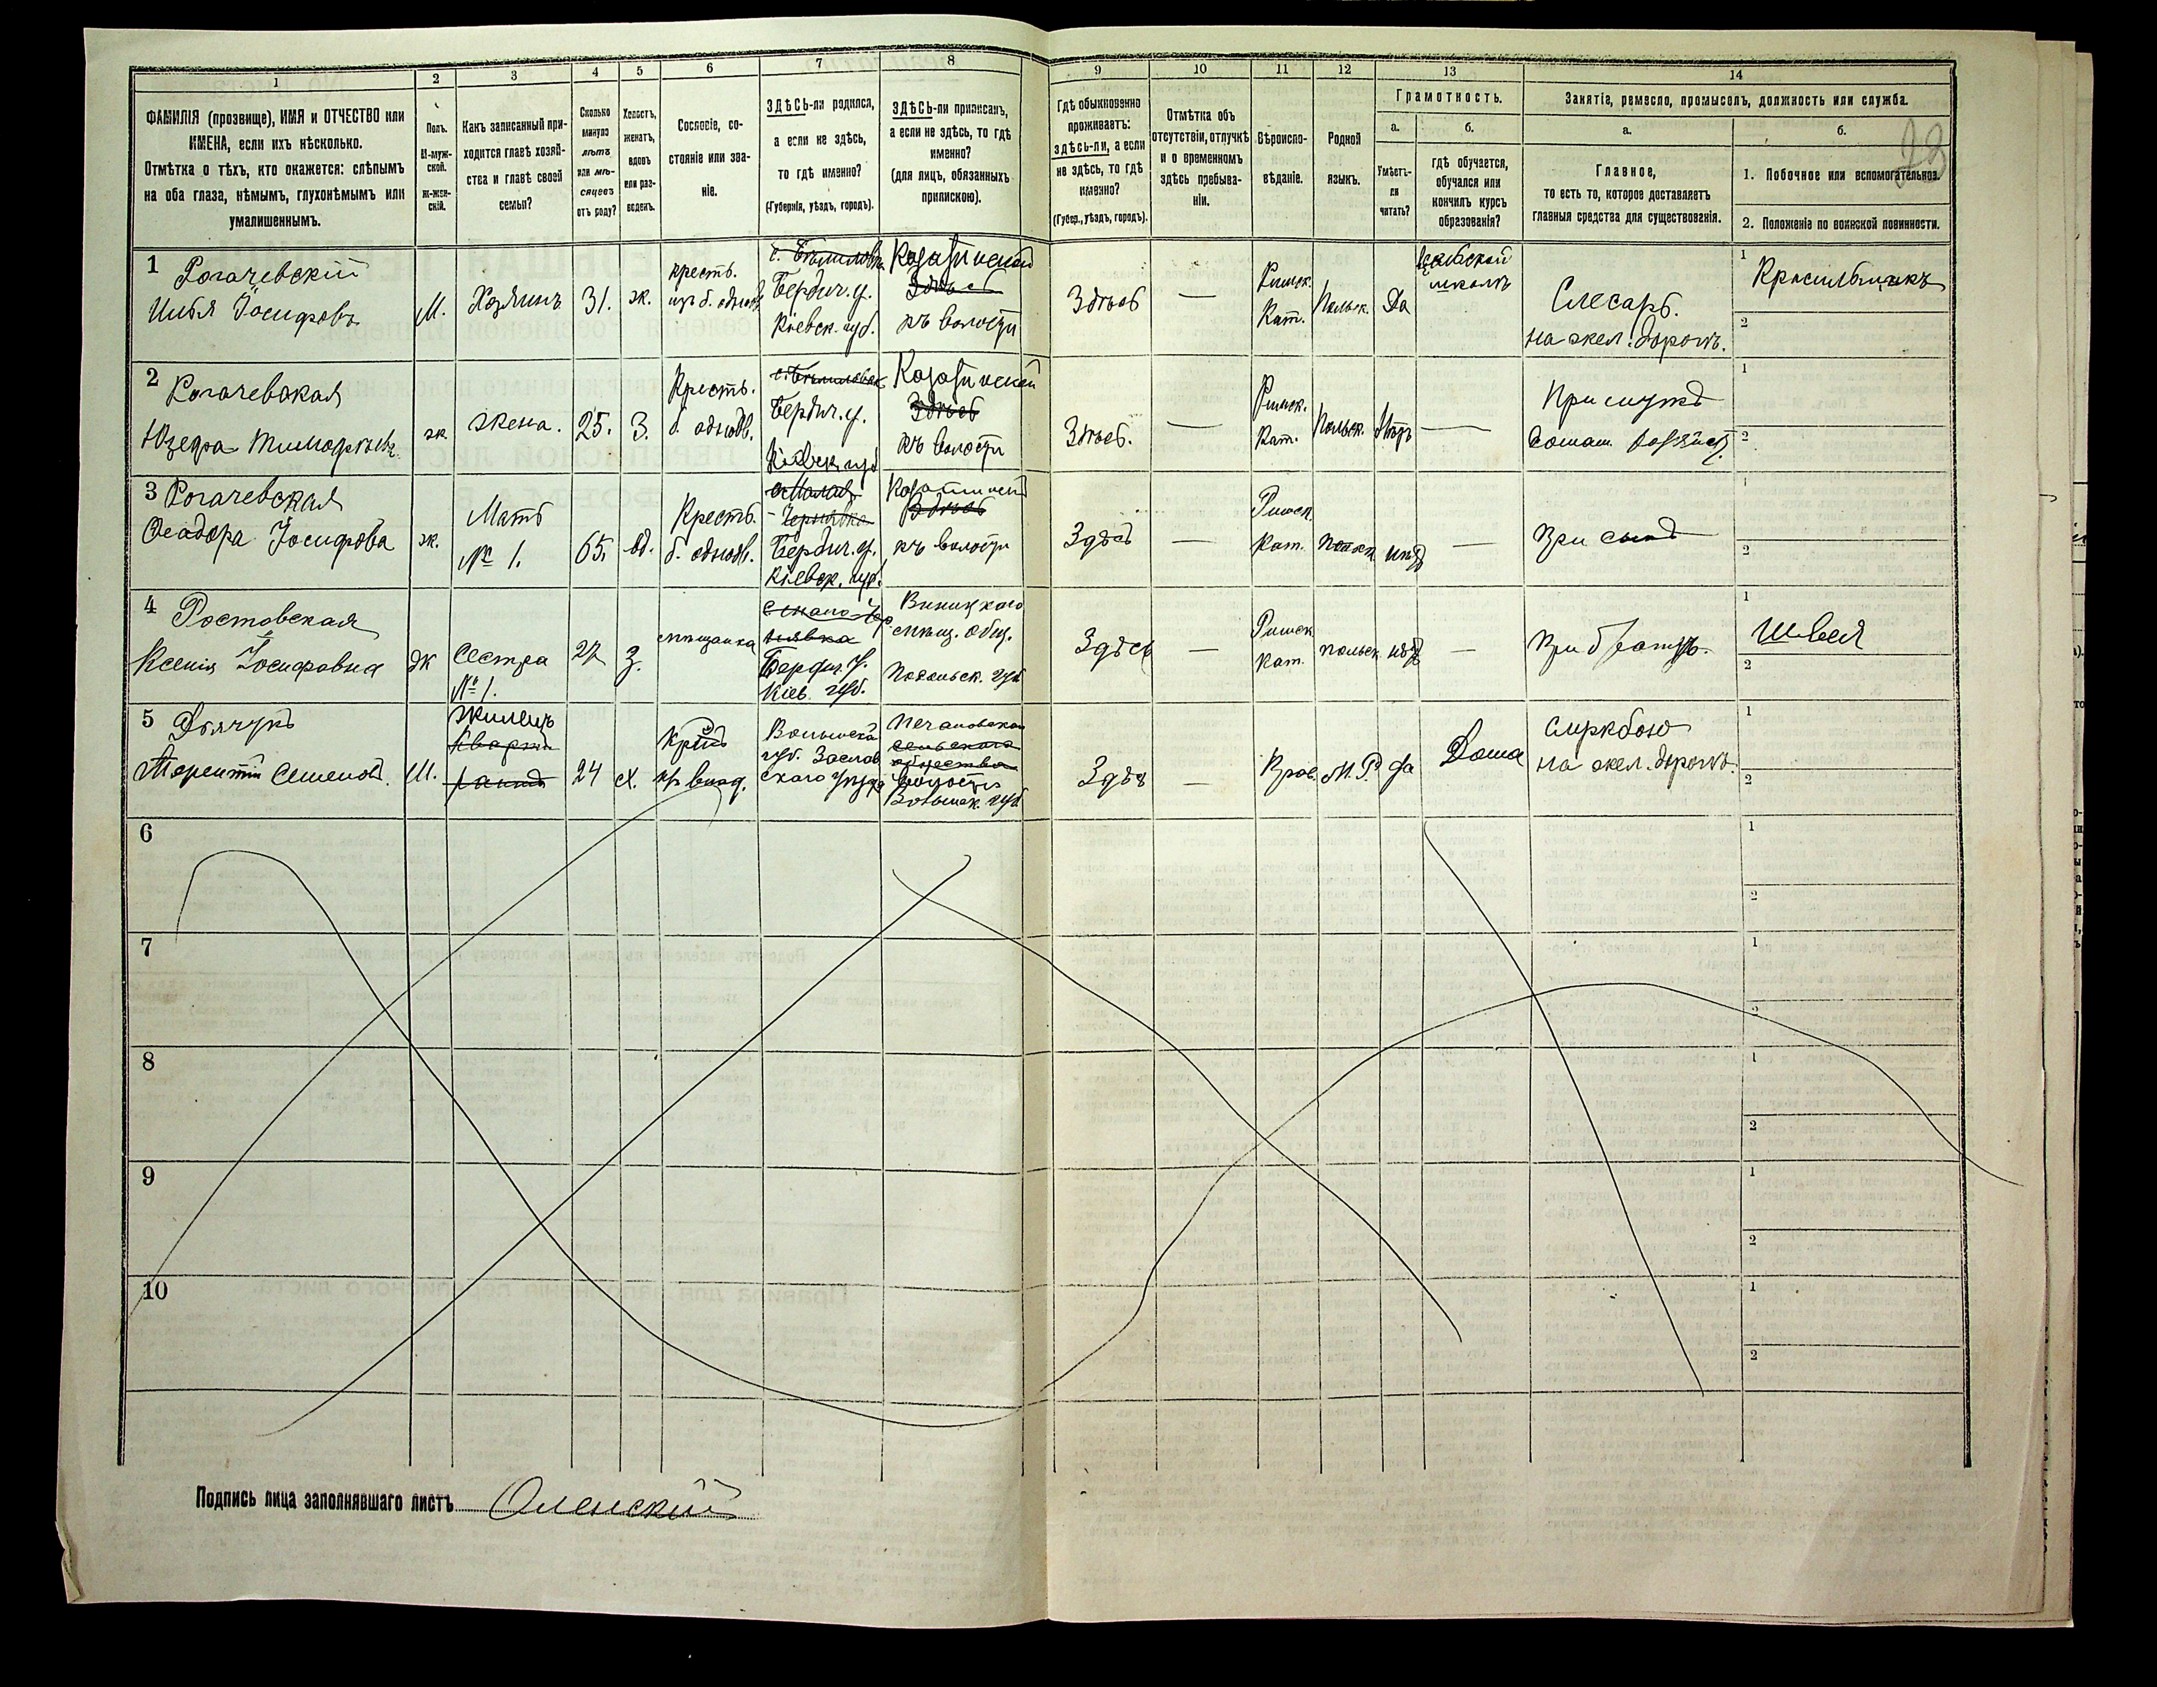 1 2 3 4 5 6 7 8 9 10 11 12 13 14
ФАМИЛІЯ (прозвище), ИМЯ и ОТЧЕСТВО или
ИМЕНА, если ихъ нѣсколько.
Отмѣтка о тѣхъ, кто окажется: слѣпымъ
на оба глаза, нѣмымъ, глухонѣмымъ или
умалишеннымъ.
Полъ.
М-муж-
ской.
ж-жен-
скій.
Какъ записанный при-
ходится главѣ хозяй-
ства и главѣ своей
семьи?
Сколько
минуло
лѣтъ
или мѣ-
сяцевъ
отъ роду?
Холостъ,
женатъ,
вдовъ
или раз-
веденъ.
Сословіе, со-
стояніе или зва-
ніе.
ЗДѢСЬ-ли родился,
а если не здѣсь,
то гдѣ именно?
(Губернія, уѣздъ, городъ).
ЗДѢСЬ-ли приписанъ,
а если не здѣсь, то гдѣ
именно?
(для лицъ, обязанныхъ
припискою).
Гдѣ обыкновенно
проживаетъ:
здѣсь-ли, а если
не здѣсь, то гдѣ
именно?
(Губер., уѣздъ, городъ).
Отмѣтка объ
отсутствіи, отлучкѣ
и о временномъ
здѣсь пребыва-
ніи.
Вѣроиспо-
вѣданіе.
Родной
языкъ.
Грамотность.
а.
Умѣетъ-
ли
читать?
б.
гдѣ обучается,
обучался или
кончилъ курсъ
образованія?
Занятіе, ремесло, промыселъ, должность или служба.
а.
Главное,
то есть то, которое доставляетъ
главныя средства для существованія.
б.
1. Побочное или вспомогательное.
2. Положеніе по воинской повинности.
1
Рогачевскій
Іосифовъ
М.
Хозяинъ
31.
ж.
крест.
изъ б. однод.
Бердич. у.
Кіевск. губ.
Казатинской
Здѣсь
къ волости
Здѣсь
—
Римск.
Кат.
Польск.
Да
школѣ
Слесарь.
на жел. дорогѣ.
1
Красильщикъ
2
2
Рогачевская
Юзефа
ж.
Жена.
25.
З.
Крест.
б. однодв.
Бердич. у.
Кіевск. губ.
Казатинской
Здѣсь
къ волости
Здѣсь.
—
Римск.
Кат.
Польск.
Нѣтъ
—
При мужѣ
1
2
3
Рогачевская
Іосифова
ж.
Мать
№ 1.
65.
вд.
Крест.
б. однодв.
Чернявка
Бердич. у.
Кіевск. губ.
Казатинской
Здѣсь
къ волости
Здѣсь
—
Римск.
Кат.
нѣтъ
—
При сынѣ
1
2
4
Ростовская
Ксенія Іосифовна
ж
Сестра
№ 1.
27
З.
мѣщанка
Бердич. у.
Кіев. губ.
Виницкаго
мѣщ. общ.
Подольск. губ.
Здѣсь
—
Римск.
Кат.
польск.
нѣтъ
—
При братѣ.
1
Швея
2
5
Дьячукъ
Терентій Семеновъ.
М.
жилецъ
24
х.
Волынской
губ. Заслав
скаго уѣзда
сельскаго
общества
волости
Волынск. губ.
Здѣсь
—
Прав.
М. Р.
да
Дома
Службою
на жел. дорогѣ.
1
2
6
1
2
7
1
2
8
1
2
9
1
2
10
1
2
Подпись лица заполнявшаго листъ Оленскій